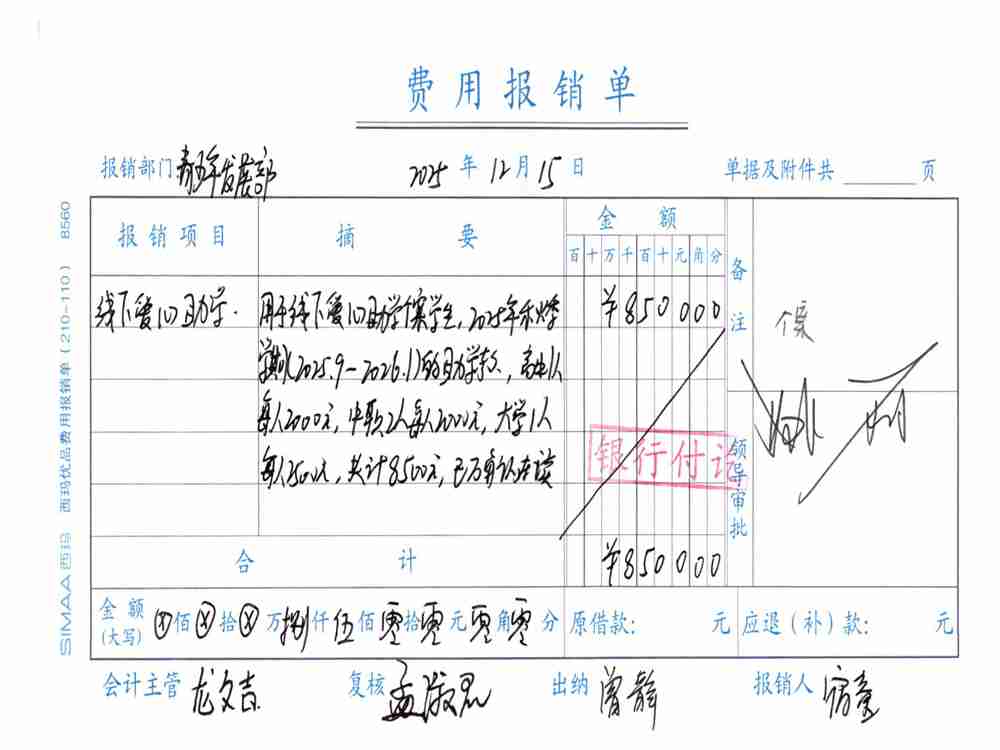 费用报销单
报销部门 青年发展部 2025 年 12 月 15 日 单据及附件共 页
报销项目 摘要 金额 备注
百 十 万 千 百 十 元 角 分
线下爱心助学 用于线下爱心助学个案学生,2025年秋季 ¥850000 个案
学期(2025.9-2026.1)的助学款,高中1人
每人2000元,中职2人每人2000元,大学1人
每人2500元,共计8500元,已万确认在读
银行付讫
领导审批
合计 ¥850000
金额(大写) ⊗佰⊗拾⊗万捌仟伍佰零拾零元零角零分 原借款: 元 应退(补)款: 元
会计主管 龙文吉 复核 孟淑君 出纳 曾静 报销人
SIMAA西玛 西玛优品费用报销单(210-110) 8560